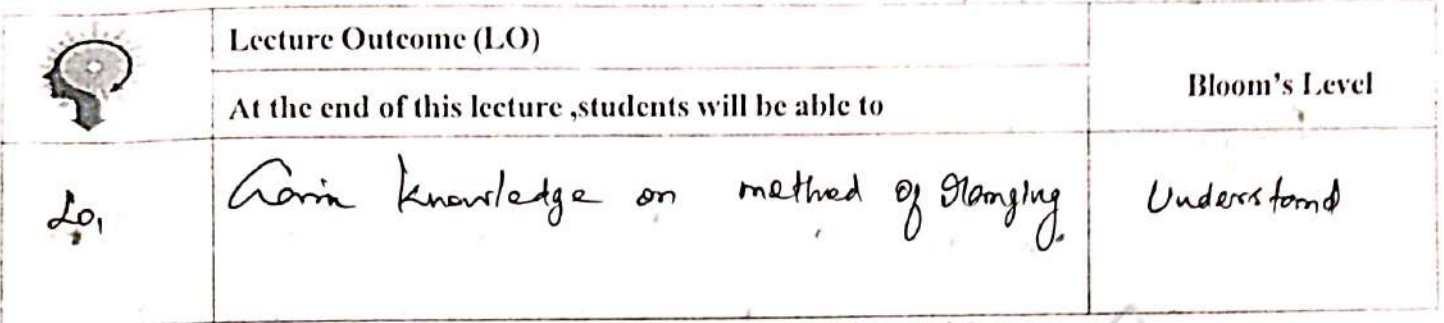 Lecture Outcome (LO)
At the end of this lecture ,students will be able to
Bloom's Level
LO1
Gain knowledge on method of Ranging.
Understand